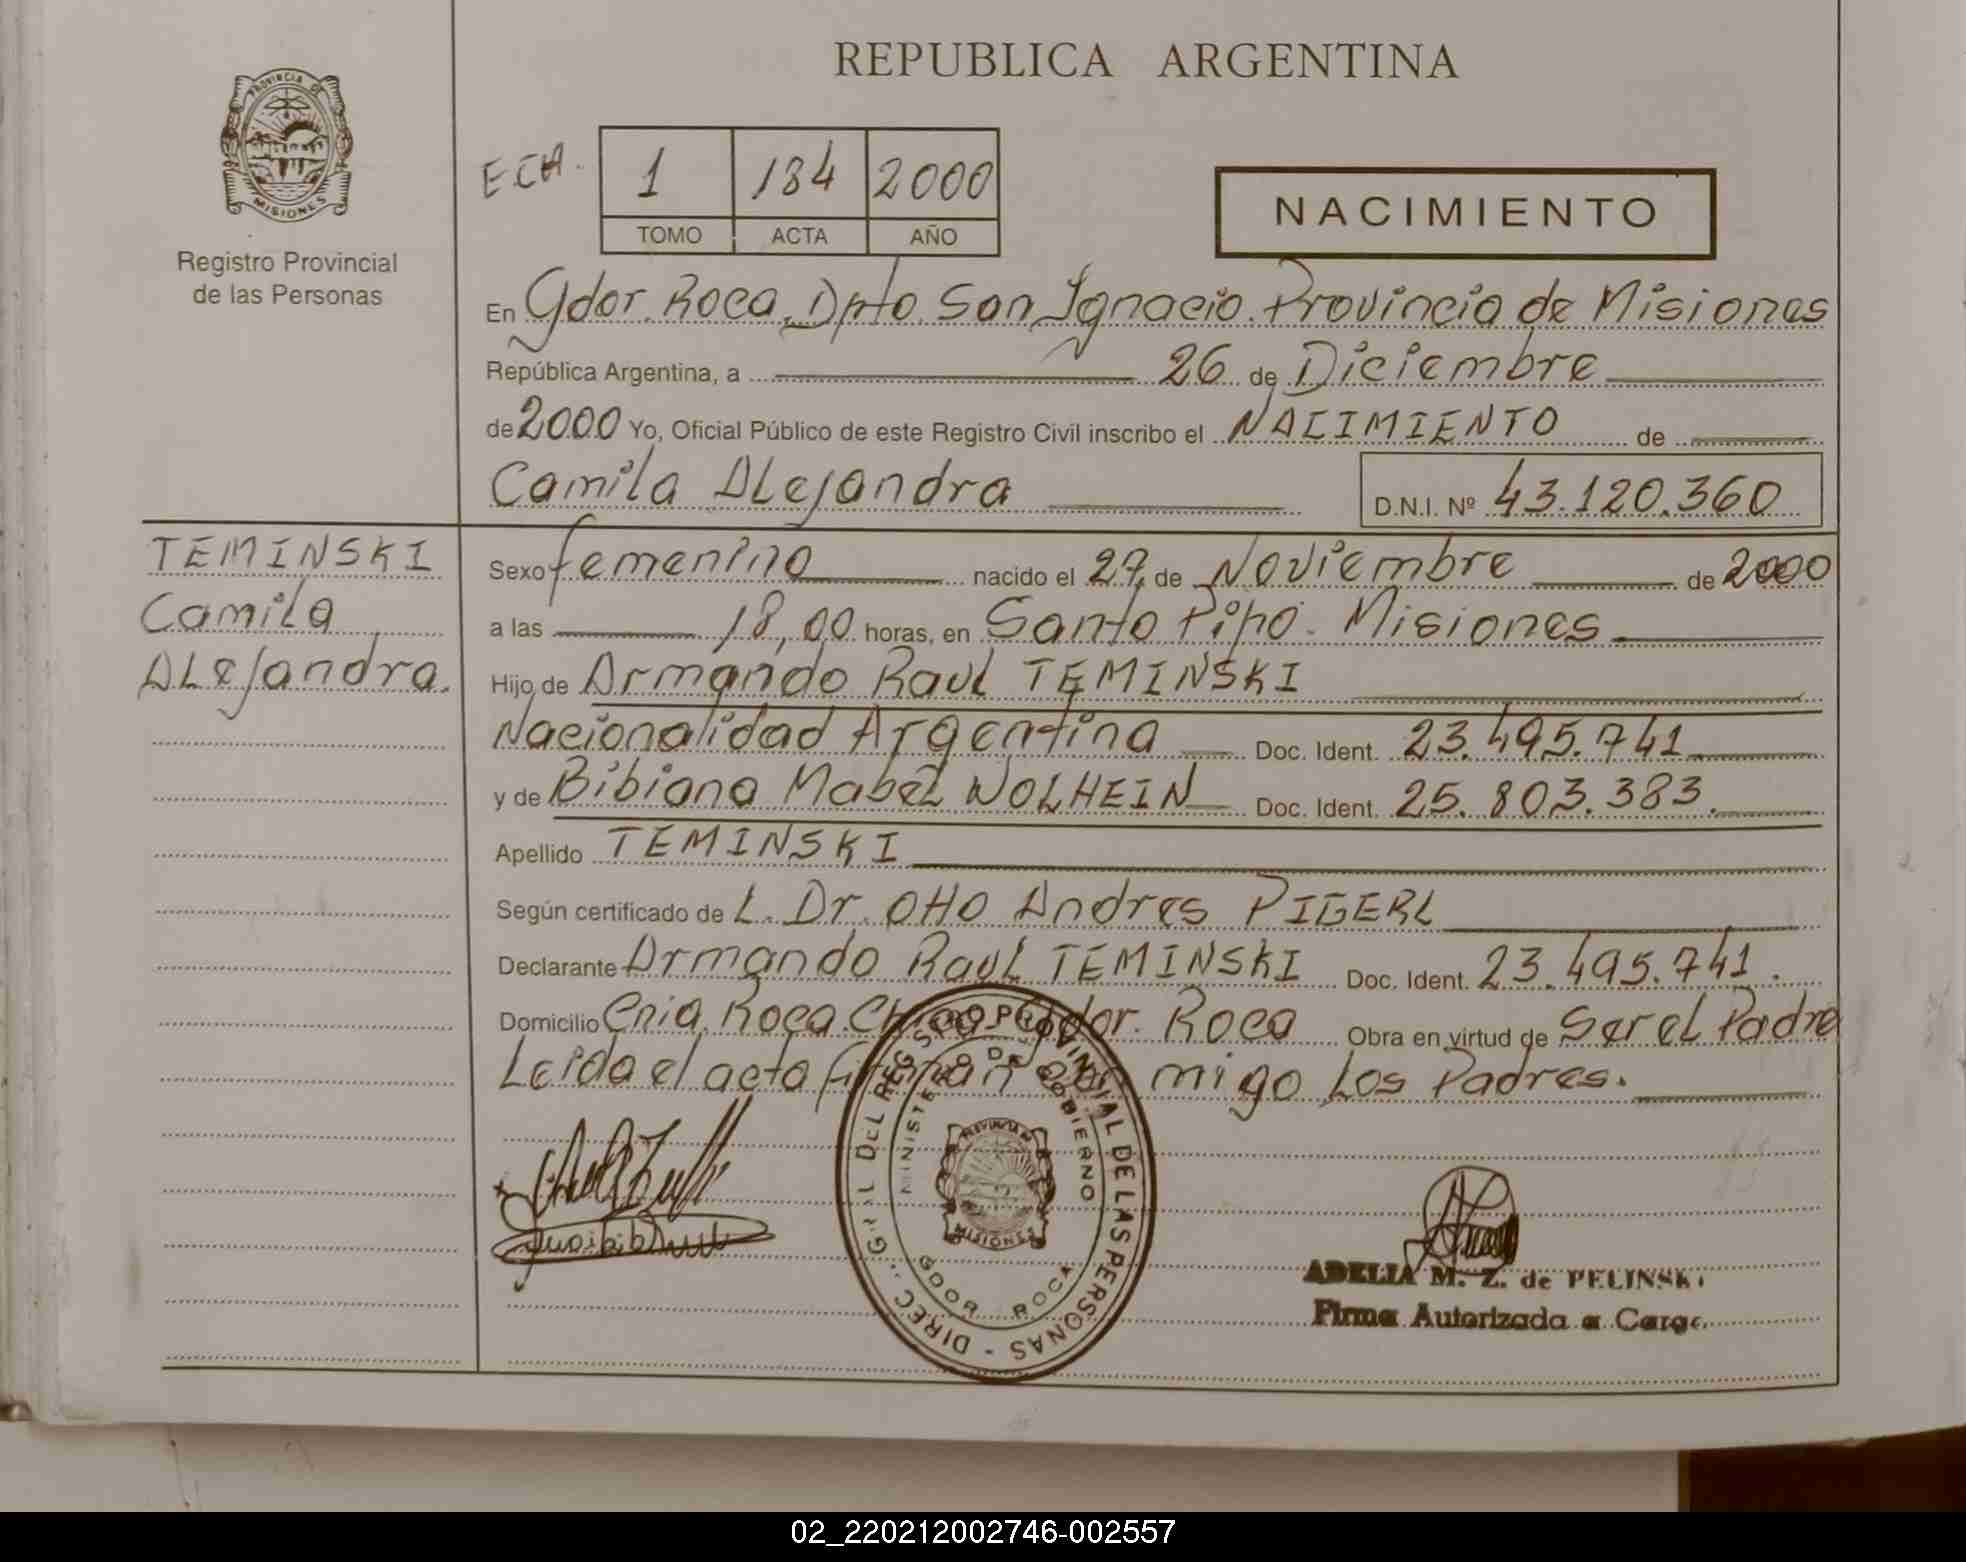 REPUBLICA ARGENTINA
PROVINCIA DE
MISIONES
Registro Provincial
de las Personas
E.CH.
1 184 2000
TOMO ACTA AÑO
NACIMIENTO
En Gdor. Roca, Dpto. San Ignacio. Provincia de Misiones
República Argentina, a 26 de Diciembre
de 2000 Yo, Oficial Público de este Registro Civil inscribo el NACIMIENTO de
Camila Alejandra D.N.I. Nº 43.120.360
TEMINSKI
Camila
Alejandra.
Sexo femenino nacido el 27 de Noviembre de 2000
a las 18,00 horas, en Santo Pipó. Misiones
Hijo de Armando Raul TEMINSKI
Nacionalidad Argentina Doc. Ident. 23.495.741
y de Bibiana Mabel WOLHEIN Doc. Ident. 25.803.383.
Apellido TEMINSKI
Según certificado de L. Dr. Otto Andres PIGERL
Declarante Armando Raul TEMINSKI Doc. Ident. 23.495.741.
Domicilio Cnia. Roca Gdor. Roca Obra en virtud de Ser el Padre
Leida el acta firman con migo Los Padres.
DIREC. GRAL DEL REGISTRO PROVINCIAL DE LAS PERSONAS
MINISTERIO DE GOBIERNO
PROVINCIA DE
MISIONES
GDOR. ROCA
ADELIA M. Z. de PELINSKI
Firma Autorizada a Cargo
02_220212002746-002557